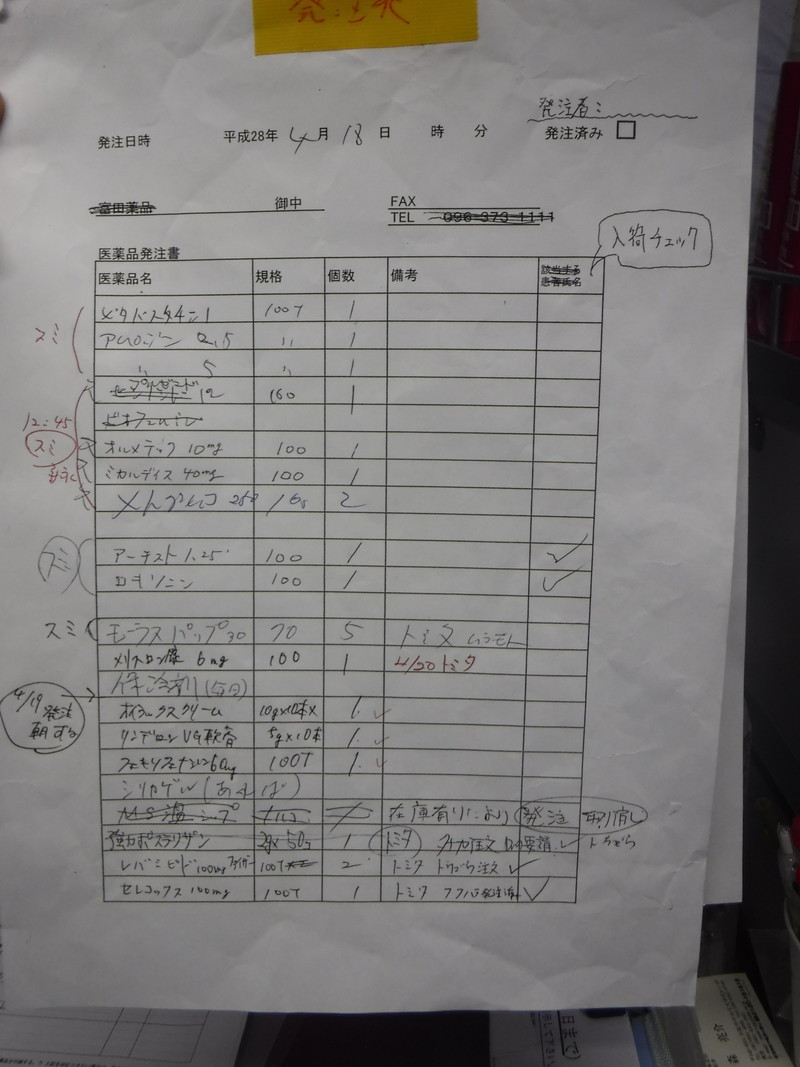 発注
発注者:
発注日時 平成28年 4月 18日 時 分 発注済み □
富田薬品 御中 FAX
TEL 096-373-1111
入荷チェック
医薬品発注書
医薬品名 規格 個数 備考 該当する患者氏名
スミ
ピタバスタチン1 100T 1
アムロジン 2.5 〃 1
〃 5 〃 1
12 1
12:45
スミ
オルメテック 10mg 100 1
ミカルディス 40mg 100 1
250 2
スミ
アーチスト 1.25 100 1 ✓
ロキソニン 100 1 ✓
スミ モーラスパップ30 70 5 トミタ
メリスロン錠 6mg 100 1 4/20トミタ
4/19発注朝する
保冷剤(毎日)
オイラックスクリーム 10g×10本× 1 ✓
リンデロンVG軟膏 5g×10本 1 ✓
60mg 100T 1 ✓
シリカゲル(あれば)
MS温シップ 在庫有りにより 発注 取り消し
強力ポスチリザン 1 トミタ ✓
レバミピド100mg ファイザー 100T 2 トミタ 注文 ✓
セレコックス 100mg 100T 1 トミタ ✓